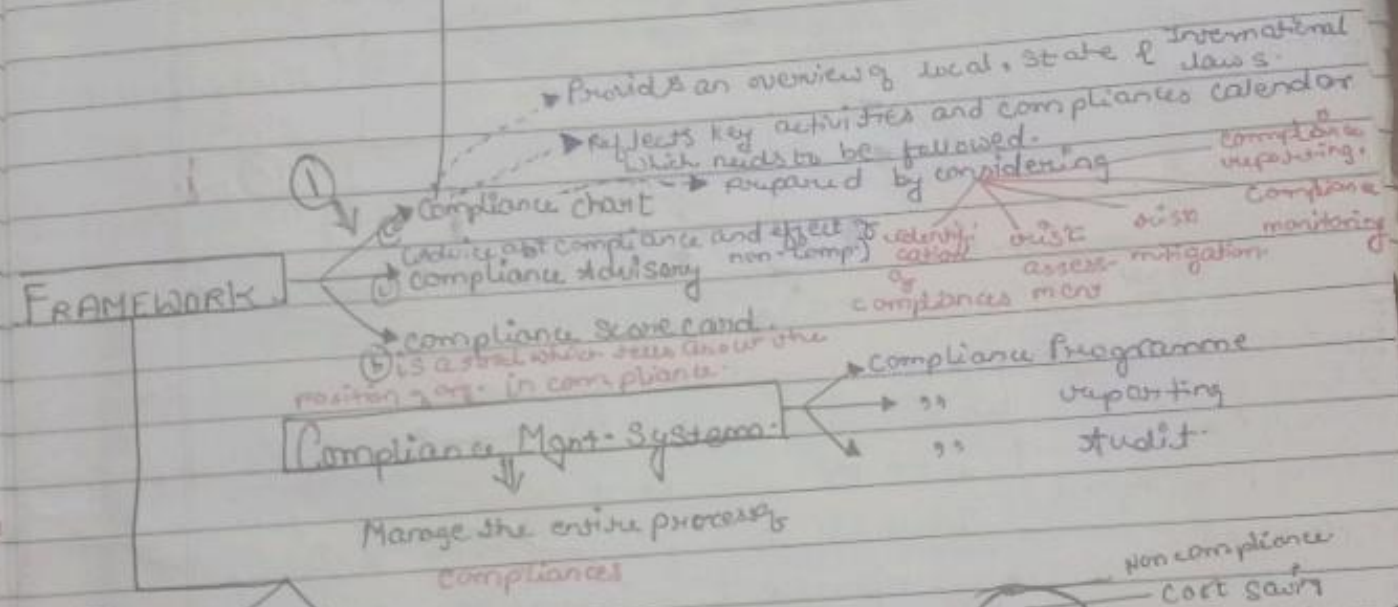 Provids an overview of local, state & International laws.
Reflects key activities and compliances calendar
which needs to be followed.
① Compliance chart → prepared by considering
identification of compliances
risk assessment
risk mitigation
Compliance monitoring
compliance reporting.
FRAMEWORK
(advice abt compliance and effect of non-comp)
compliance Advisory
compliance scorecard
is a which about the
position of org. in compliance.
Compliance Mgmt. System
Compliance Programme
,, reporting
,, Audit.
Manage the entire process of
compliances
Non compliance
Cost savin